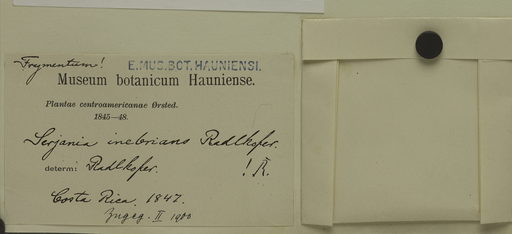 Fragmentum! E.MUS.BOT.HAUNIENSI.
Museum botanicum Hauniense.
Plantae centroamericanae Ørsted.
1845—48.
Serjania inebrians Radlkofer.
determ: Radlkofer. ! R.
Costa Rica. 1847.
Zugeg. II 1900